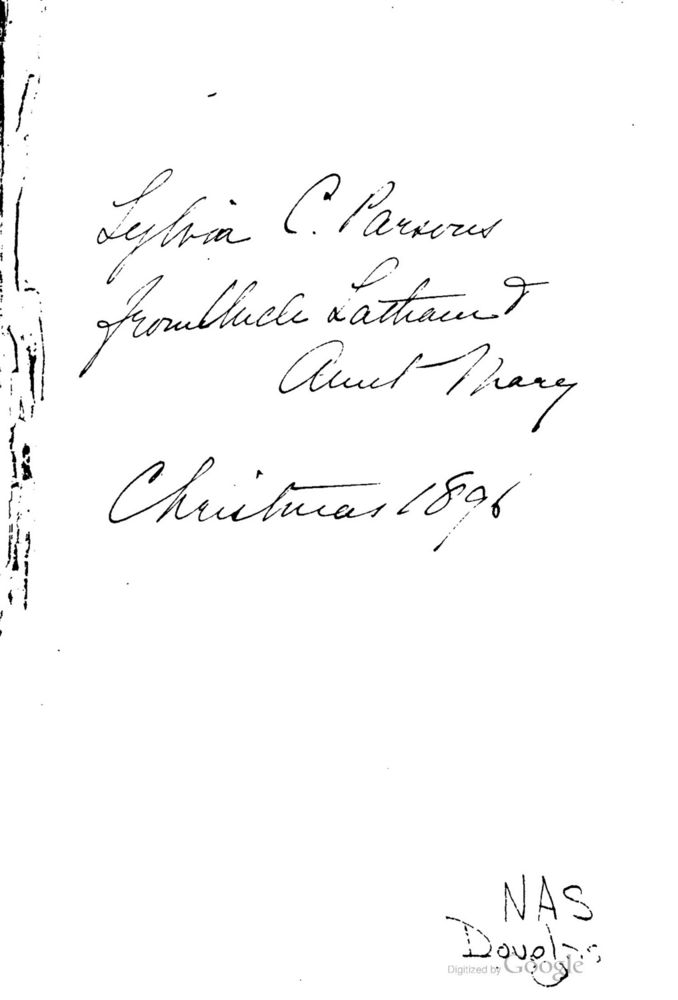 Sylvia C. Parsons
from Uncle Latham &
Aunt Mary
Christmas 1896
NAS
Douglas
Digitized by Google